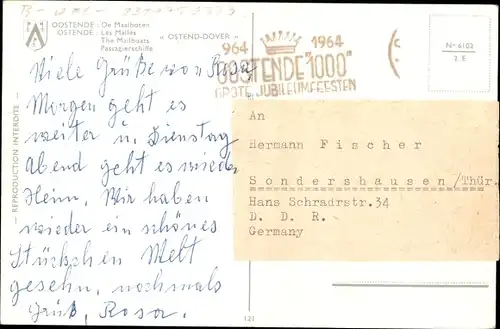 OOSTENDE : De Maalboten
OSTENDE : Les Malles
The Mailboats
Passagierschiffe
« OSTEND-DOVER »
964 1964
OOSTENDE "1000"
GROTE JUBILEUMFEESTEN
Nº 6102
2 E
REPRODUCTION INTERDITE
Viele Grüße von Rosa
Morgen geht es
weiter u. Dienstag
Abend geht es wieder
Heim, Wir haben
wieder ein schönes
Stückchen Welt
gesehn, nochmals
Gruß, Rosa.
An
Hermann Fischer
Sondershausen/Thür.
Hans Schradrstr.34
D. D. R.
Germany
121